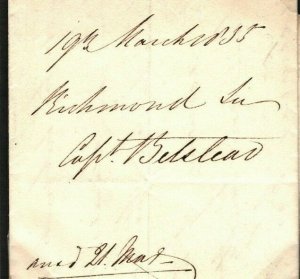 19th March 1835
Richmond
Capt. Belstead
21. Mar